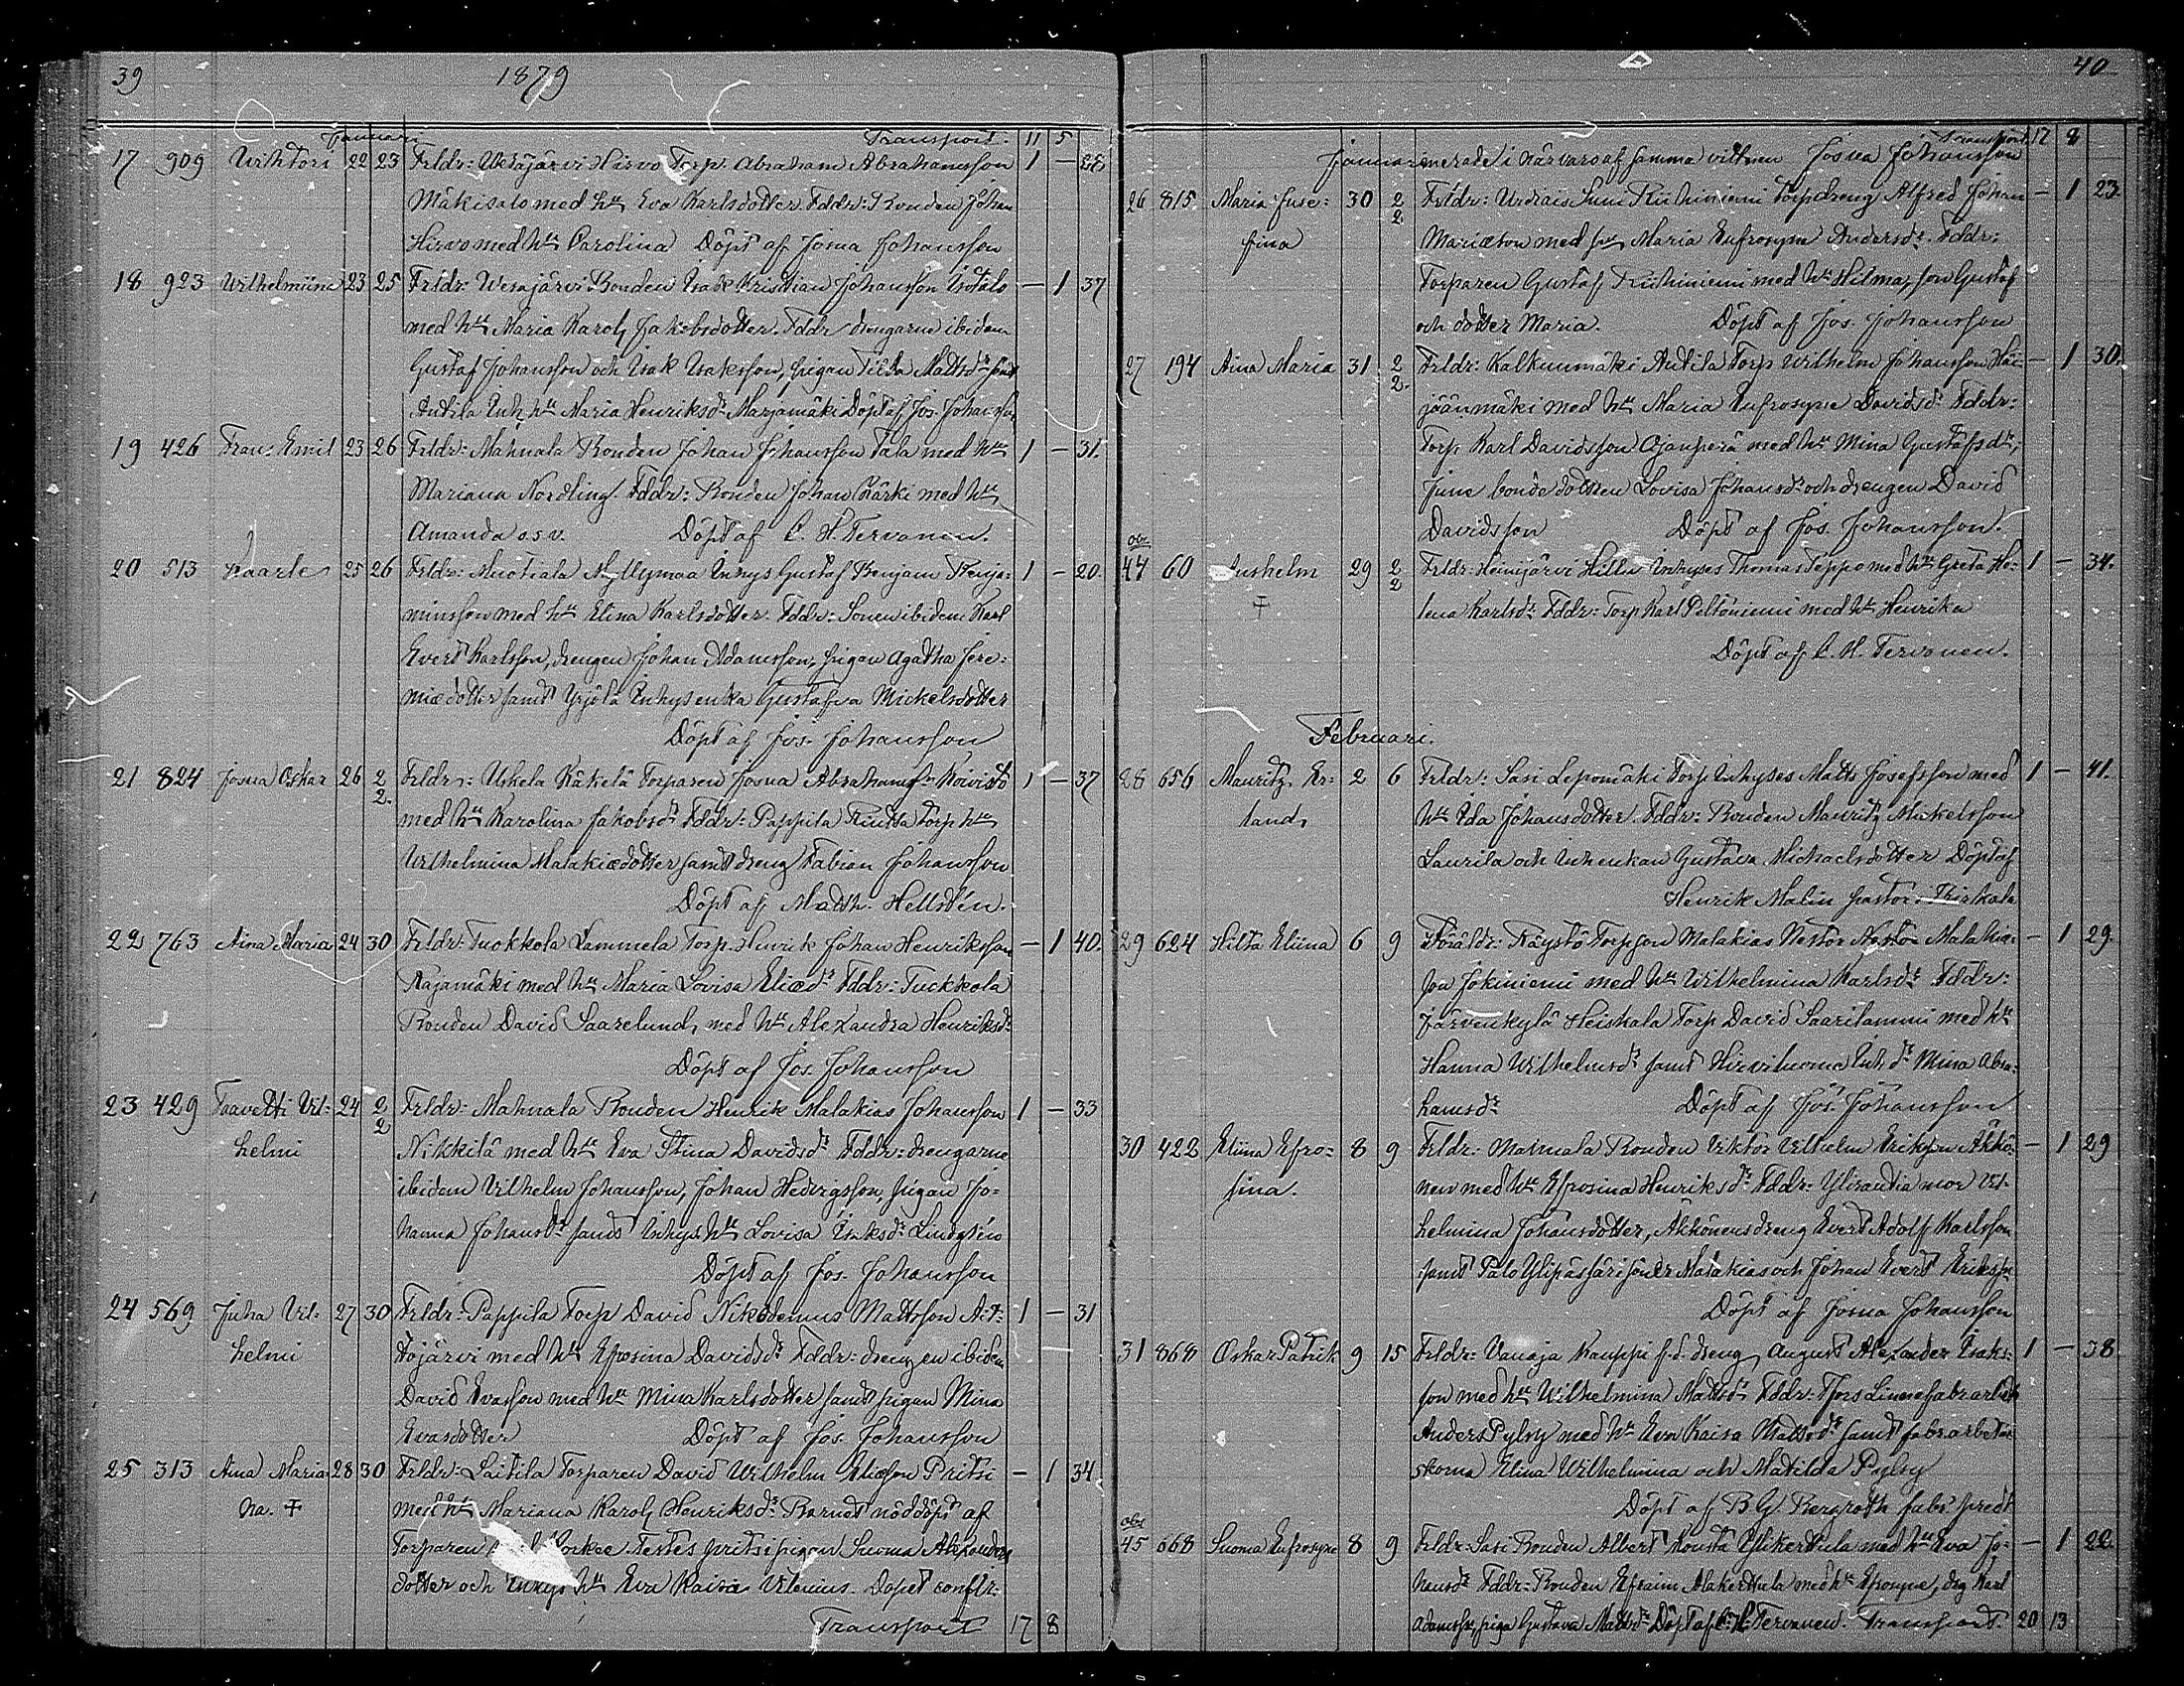 39 1879
Januari Transport. 11 5
17 909 Wihtori 22 23 Frldr: Wesajärvi Hirvo Torp. Abraham Abrahamsson 1 — 28
Mäkisalo med hu Eva Karlsdotter. Fddr: Bonden Johan
Hirvo med hu Carolina Döpt af Josua Johansson
18 923 Wilhelmiina 23 25 Frldr: Wesajärvi Bonden Isak Kristian Johansson Isotalo — 1 37
med hu Maria Karol. Jakobsdotter. Fddr drengarne ibidem
Gustaf Johansson och Isak Isaksson, pigan Tilda Mattsdr samt
Antila Inh. hu Maria Henriksdr Marjamäki Döpt af Jos. Johansson
19 426 Frans Emil 23 26 Frldr: Mahnala Bonden Johan Johansson Tala med hu 1 — 31.
Mariana Nordling. Fddr: Bonden Johan Kärki med hu
Amanda o.s.v. Döpt af C. H. Tervonen.
20 513 Kaarle 25 26 Frldr: Muotiala Myllymaa Inhys Gustaf Benjam Benja: 1 — 20.
minsson med hu Elina Karlsdotter. Fddr: Sonen ibidem Karl
Evert Karlsson, drengen Johan Adamsson, pigan Agatha Jere:
miædotter samt Yrjölä Inhysenka Gustafva Mickelsdotter
Döpt af Jos. Johansson
21 824 Josua Oskar 26 2/2. Frldr: Uskela Käkelä Torparen Josua Abrahamss. Koivisto 1 — 37
med hu Karolina Jakobsdr Fddr: Pappila Rintsa Torp. hu
Wilhelmina Malakiædotter samt dreng Fabian Johansson
Döpt af Matth. Hellstén.
22 763 Aina Maria 24 30 Frldr: Tuokkola Lammela Torp. Henrik Johan Henriksson — 1 40.
Rajamäki med hu Maria Lovisa Eliædr Fddr: Tuckkola
Bonden David Saarelund, med hu Alexandra Henriksdr
Döpt af Jos. Johansson
23 429 Taavetti Vil: 24 2/2 Frldr: Mahnala Bonden Henrik Malakias Johansson 1 — 33
helmi Nikkilä med hu Eva Stina Davidsdr Fddr: drengarne
ibidem Vilhelm Johansson, Johan Hedvigsson, pigan Jo:
hanna Johansdr samt Inhys. hu Lovisa Isaksdr Lindgrén
Döpt af Jos. Johansson
24 569 Juha Vil: 27 30 Frldr: Pappila Torp David Nikodemus Mattsson Ait: 1 — 31
helmi tojärvi med hu Efrosina Davidsdr Fddr: drengen ibidem
David Evasson med hu Mina Karlsdotter samt pigan Mina
Evasdotter Döpt af Jos. Johansson
25 313 Aina Maria 28 30 Frldr: Laitila Torparen David Wilhelm Eliæson Pritsi — 1 34.
na. ‡ med hu Mariana Karol. Henriksdr Barnet nöddöpt af
Torparen Korkee. Testes pritsi pigan Suoma Alexanders
dotter och Inhys hu Eva Kaisa Vilenius. Dopet confir:
Transport 17 8
40
Transport 17 8
Januari merade i närvaro af samma vittnen Josua Johansson
26 815. Maria Juse: 30 2/2. Frldr: Urdiais Suni Riihiniemi Torpdreng Alfred Johan — 1 23.
fina Mariæson med hu Maria Eufrosyne Andersdr. Fddr:
Torparen Gustaf Riihiniemi med hu Hilma, son Gustaf
och dotter Maria. Döpt af Jos. Johansson
27 194 Aina Maria 31 2/2. Frldr: Kalkunmäki Antila Torp Wilhelm Johansson Häi — 1 30.
jöänmäki med hu Maria Eufrosyne Davidsdr Fddr:
Torp. Karl Davidsson Ojanperä med hu Mina Gustafsdr;
June bondedottern Lovisa Johansdr och drengen David
Davidsson Döpt af Jos. Johansson.
obs
44 60 Anshelm 29 2/2 Frldr: Heinijärvi Hillu Inhyses Thomas Seppo med hu Greta He: 1 — 34.
‡ lena Karlsdr. Fddr: Torp Karl Peltoniemi med hu Henrika
Döpt af C. H. Tervonen.
Februari.
28 656 Mauritz Er: 2 6 Frldr: Sasi Lepomäki Torp Inhyses Matts Josefsson med 1 — 41.
land, hu Ida Johansdotter. Fddr: Bonden Mauritz Mickelsson
Laurila och Inhenkan Gustava Michaelsdotter Döpt af
Henrik Malin pastor i Thirskala
29 624 Hilta Eliina 6 9 Föräldr: Räystö Torpson Malakias Nestor Malakia: — 1 29.
son Jokiniemi med hu Wilhelmina Karlsdr. Fddr:
Järvenkylä Heiskala Torp David Saarilammi med hu
Hanna Wilhelmsdr samt Hirviluoma Inh. dr Mina Abra:
hamsdr Döpt af Jos. Johansson
30 422 Eliina Efro: 8 9 Frldr: Mahnala Bonden Viktor Vilhelm Eriksson Ahkö: — 1 29
sina. nen med hu Efrosina Henriksdr Fddr: Ylirantia mor Vil:
helmina Johansdotter, Ahkönens dreng Evert Adolf Karlsson
samt Palo Ylipässäri söner Malakias och Johan Evert Erikss.
Döpt af Josua Johansson
31 868 Oskar Patrik 9 15 Frldr: Vanaja Kauppi f.d. dreng August Alexander Isaks: 1 — 38
son med hu Wilhelmina Mattsdr Fddr: Tfors Linnefabr arbet
Anders Pylsy med hu Eva Kaisa Mattsdr samt fabr. arbeter
skorna Elina Wilhelmina och Matilda Pylsy
Döpt af B G. Bergroth fabr. predt
obs
45 668 Suoma Eufrosyne 8 9 Frldr: Sasi Bonden Albert Kousta Ylikerttula med hu Eva Jo: — 1 22.
hansdr Fddr: Bonden Efraim Alakerttula med hu Efrosyne, drg Karl
Adamsson, piga Gustava Mattsdr Döpt af C. H. Tervonen. Transport. 20 13